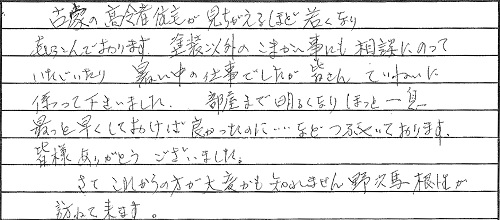 古家の高令者住宅が見ちがえるほど若くなり
よろこんでおります 塗装以外のこまかい事にも相談にのって
いただいたり 暑い中の仕事でしたが皆さんていねいに
係って下さいました。 部屋まで明るくなりほっと一息
最っと早くしておけば良かったのに…などつぶやいております。
皆様ありがとうございました。
さてこれからの方が大変かも知れません野次馬根性が
訪ねて来ます。